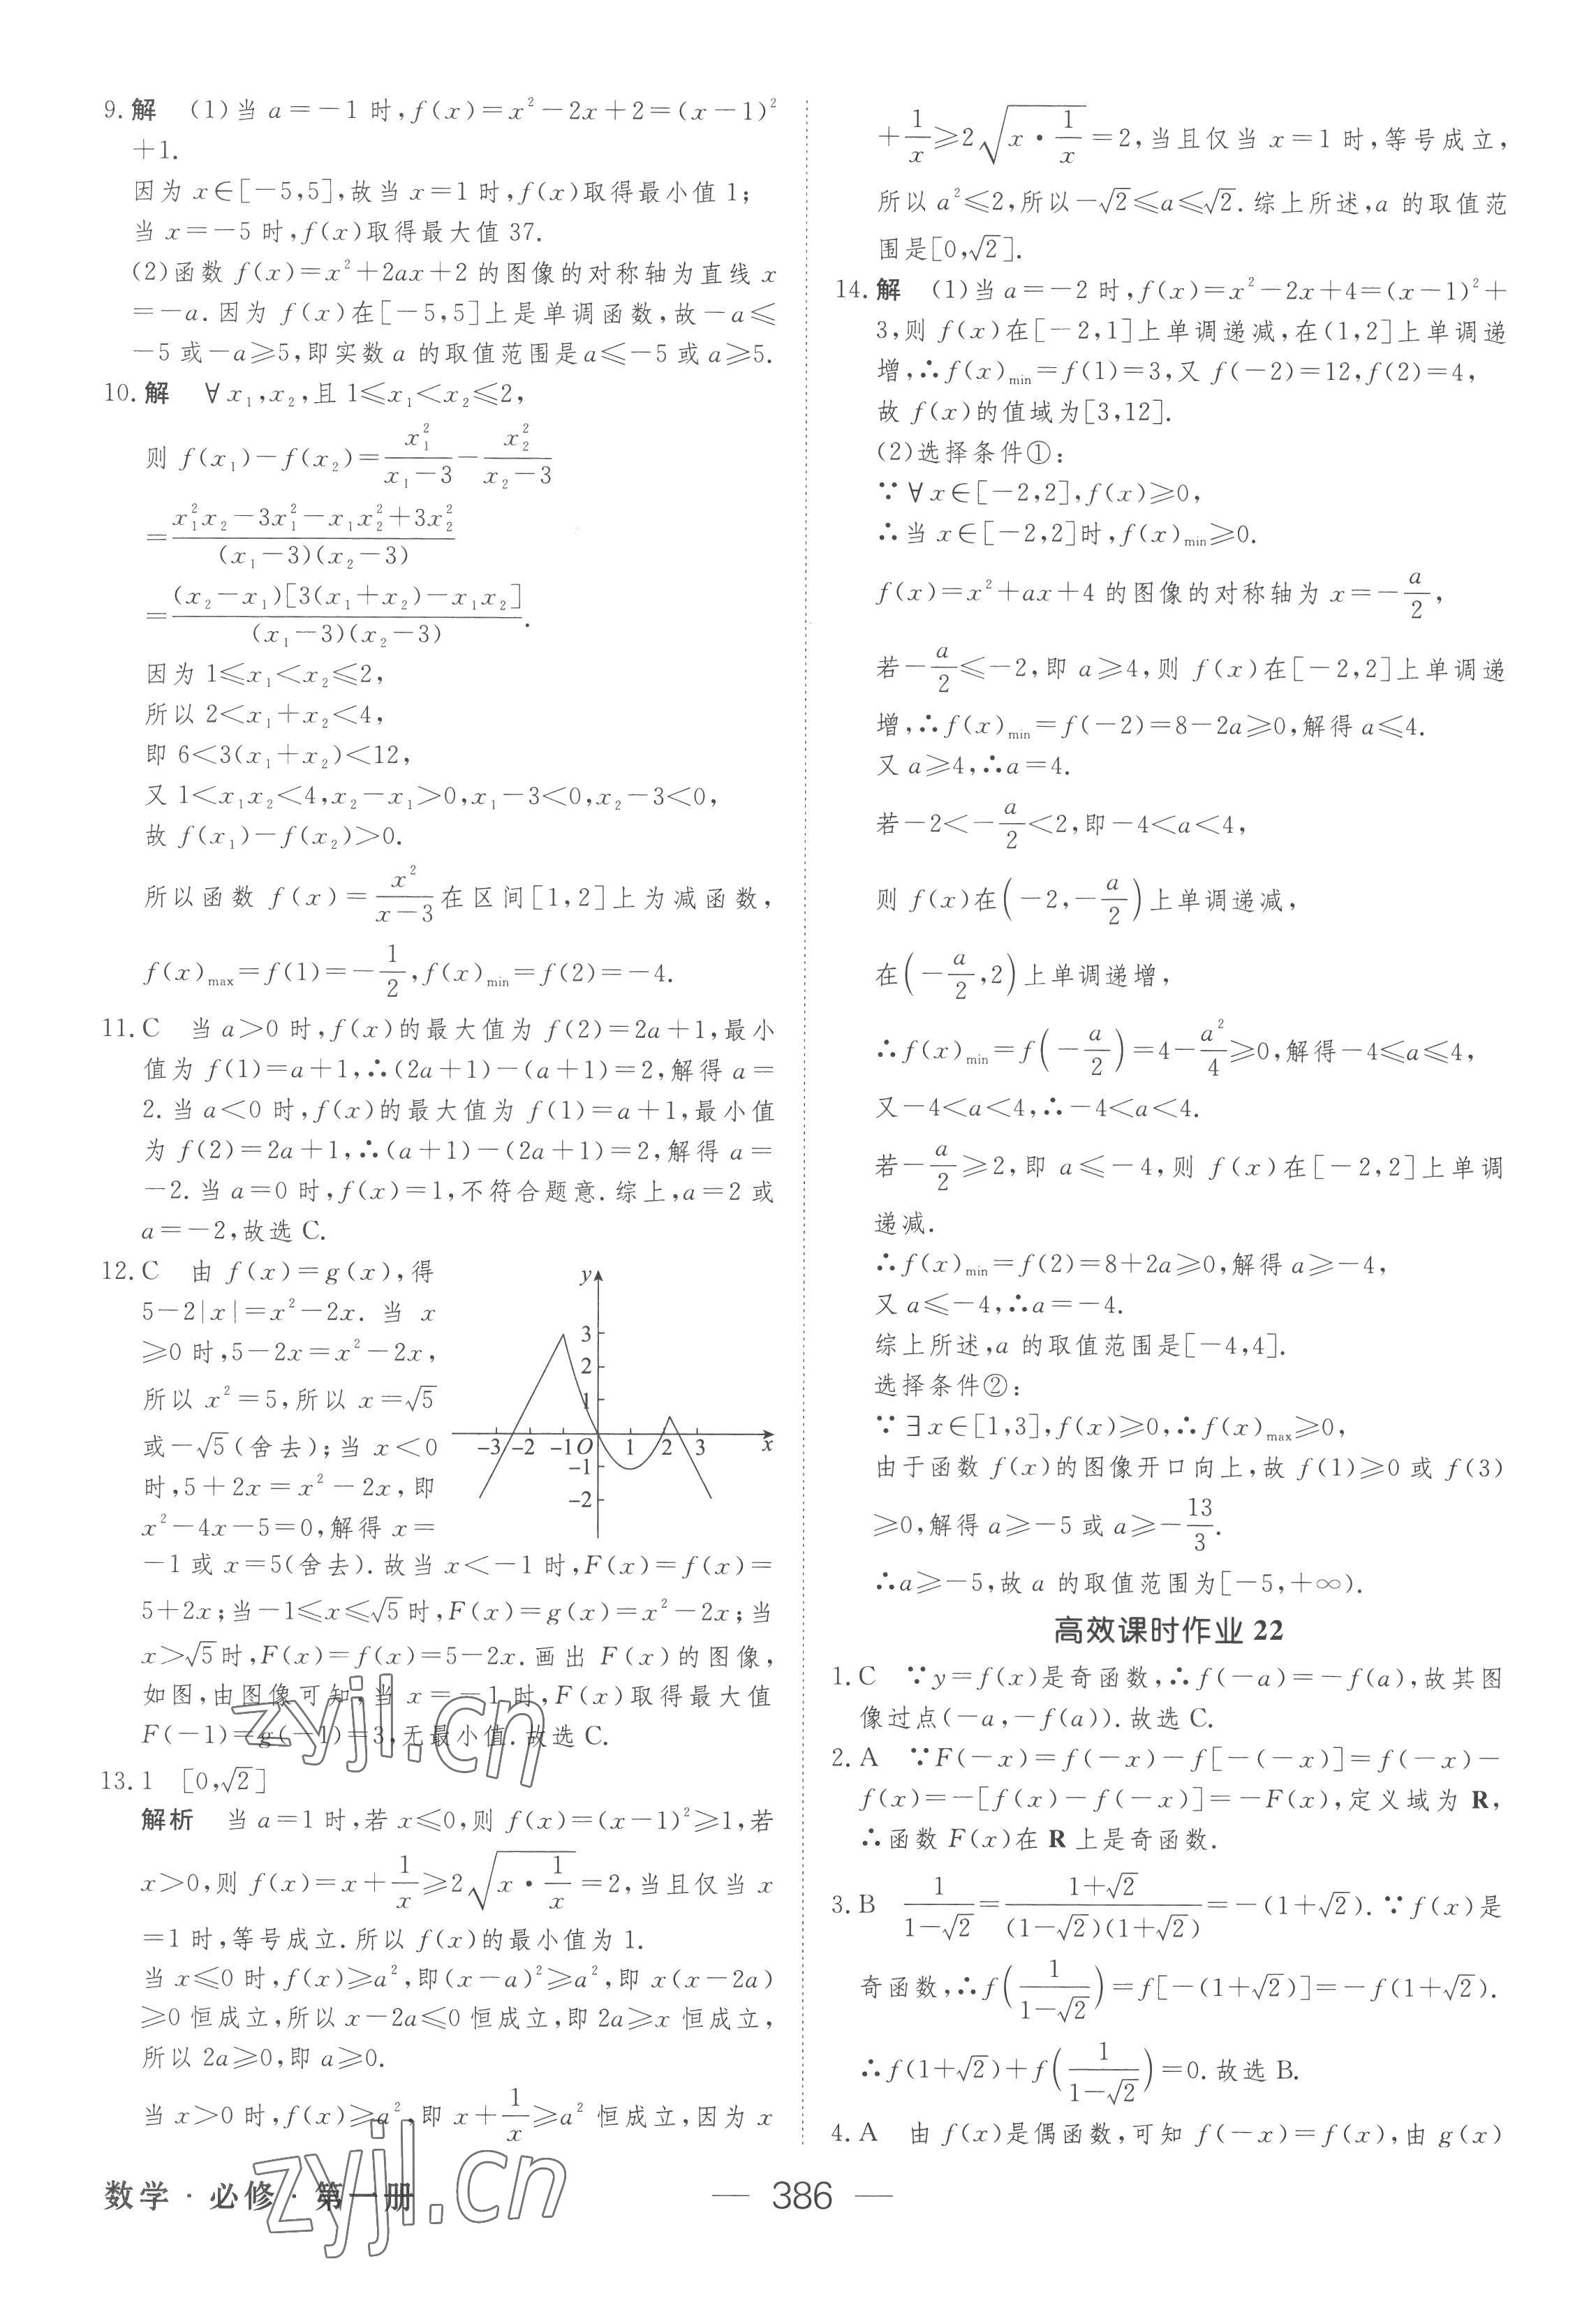 9.解 (1)当 a=-1 时,f(x)=x²-2x+2=(x-1)²
+1.
因为 x∈[-5,5],故当 x=1 时,f(x)取得最小值 1;
当 x=-5 时,f(x)取得最大值 37.
(2)函数 f(x)=x²+2ax+2 的图像的对称轴为直线 x
=-a.因为 f(x)在[-5,5]上是单调函数,故-a≤
-5 或-a≥5,即实数 a 的取值范围是a≤-5 或 a≥5.
10.解 ∀x₁,x₂,且 1≤x₁<x₂≤2,
则 f(x₁)-f(x₂)=x₁²/(x₁-3)-x₂²/(x₂-3)
=(x₁²x₂-3x₁²-x₁x₂²+3x₂²)/((x₁-3)(x₂-3))
=(x₂-x₁)[3(x₁+x₂)-x₁x₂]/((x₁-3)(x₂-3)).
因为 1≤x₁<x₂≤2,
所以 2<x₁+x₂<4,
即 6<3(x₁+x₂)<12,
又 1<x₁x₂<4,x₂-x₁>0,x₁-3<0,x₂-3<0,
故 f(x₁)-f(x₂)>0.
所以函数 f(x)=x²/(x-3)在区间[1,2]上为减函数,
f(x)max=f(1)=-1/2,f(x)min=f(2)=-4.
11.C 当 a>0 时,f(x)的最大值为 f(2)=2a+1,最小
值为 f(1)=a+1,∴(2a+1)-(a+1)=2,解得 a=
2.当 a<0 时,f(x)的最大值为 f(1)=a+1,最小值
为 f(2)=2a+1,∴(a+1)-(2a+1)=2,解得 a=
-2.当 a=0 时,f(x)=1,不符合题意.综上,a=2 或
a=-2,故选 C.
12.C 由 f(x)=g(x),得
5-2|x|=x²-2x.当 x
≥0 时,5-2x=x²-2x,
所以 x²=5,所以 x=√5
或-√5(舍去);当 x<0
时,5+2x=x²-2x,即
x²-4x-5=0,解得 x=
y
3
2
1
-3 -2 -1 O 1 2 3 x
-1
-2
-1 或 x=5(舍去).故当 x<-1 时,F(x)=f(x)=
5+2x;当-1≤x≤√5时,F(x)=g(x)=x²-2x;当
x>√5时,F(x)=f(x)=5-2x.画出 F(x)的图像,
如图,由图像可知,当 x=-1 时,F(x)取得最大值
F(-1)=g(-1)=3,无最小值.故选 C.
13.1 [0,√2]
解析 当 a=1 时,若 x≤0,则 f(x)=(x-1)²≥1,若
x>0,则 f(x)=x+1/x≥2√(x·1/x)=2,当且仅当 x
=1 时,等号成立.所以 f(x)的最小值为 1.
当 x≤0 时,f(x)≥a²,即(x-a)²≥a²,即 x(x-2a)
≥0 恒成立,所以 x-2a≤0 恒成立,即 2a≥x 恒成立,
所以 2a≥0,即 a≥0.
当 x>0 时,f(x)≥a²,即 x+1/x≥a² 恒成立,因为 x
+1/x≥2√(x·1/x)=2,当且仅当 x=1 时,等号成立,
所以 a²≤2,所以-√2≤a≤√2.综上所述,a 的取值范
围是[0,√2].
14.解 (1)当 a=-2 时,f(x)=x²-2x+4=(x-1)²+
3,则 f(x)在[-2,1]上单调递减,在(1,2]上单调递
增,∴f(x)min=f(1)=3,又 f(-2)=12,f(2)=4,
故 f(x)的值域为[3,12].
(2)选择条件①:
∵∀x∈[-2,2],f(x)≥0,
∴当 x∈[-2,2]时,f(x)min≥0.
f(x)=x²+ax+4 的图像的对称轴为 x=-a/2,
若-a/2≤-2,即 a≥4,则 f(x)在[-2,2]上单调递
增,∴f(x)min=f(-2)=8-2a≥0,解得 a≤4.
又 a≥4,∴a=4.
若-2<-a/2<2,即-4<a<4,
则 f(x)在(-2,-a/2)上单调递减,
在(-a/2,2)上单调递增,
∴f(x)min=f(-a/2)=4-a²/4≥0,解得-4≤a≤4,
又-4<a<4,∴-4<a<4.
若-a/2≥2,即 a≤-4,则 f(x)在[-2,2]上单调
递减.
∴f(x)min=f(2)=8+2a≥0,解得 a≥-4,
又 a≤-4,∴a=-4.
综上所述,a 的取值范围是[-4,4].
选择条件②:
∵∃x∈[1,3],f(x)≥0,∴f(x)max≥0,
由于函数 f(x)的图像开口向上,故 f(1)≥0 或 f(3)
≥0,解得 a≥-5 或 a≥-13/3.
∴a≥-5,故 a 的取值范围为[-5,+∞).
高效课时作业 22
1.C ∵y=f(x)是奇函数,∴f(-a)=-f(a),故其图
像过点(-a,-f(a)).故选 C.
2.A ∵F(-x)=f(-x)-f[-(-x)]=f(-x)-
f(x)=-[f(x)-f(-x)]=-F(x),定义域为 R,
∴函数 F(x)在 R 上是奇函数.
3.B 1/(1-√2)=(1+√2)/((1-√2)(1+√2))=-(1+√2).∵f(x)是
奇函数,∴f(1/(1-√2))=f[-(1+√2)]=-f(1+√2).
∴f(1+√2)+f(1/(1-√2))=0.故选 B.
4.A 由 f(x)是偶函数,可知 f(-x)=f(x),由 g(x)
数学·必修·第一册
— 386 —
zyjl.cn
zyjl.cn